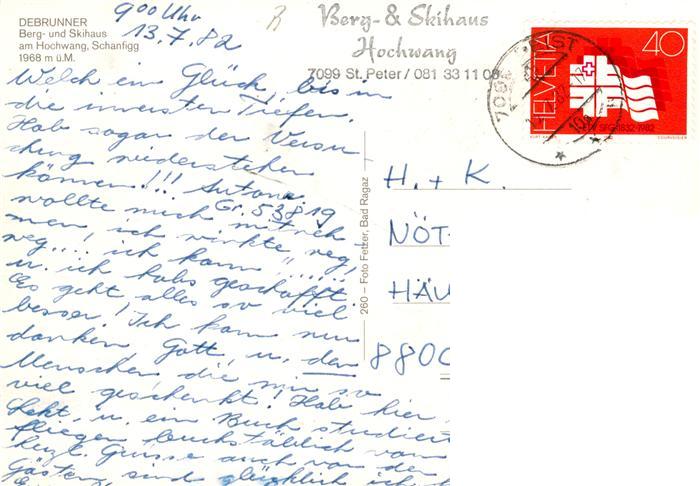 900 Uhr
13.7.82
DEBRUNNER
Berg- und Skihaus
am Hochwang, Schanfigg
1968 m ü.M.
Berg- & Skihaus
Hochwang
7099 St. Peter / 081 33 11 08
HELVETIA
40
1832-1982
Welch ein Glück, bis in
die innersten Tiefen.
Hab sogar der Versu
chung wiederstehen
können!!! Auton.
Gr. 53819
wollte mich mit neh
men, ich winkte weg,
weg... ich kann ......
u. ich habs geschafft.
Es geht alles so viel
besser! Ich kann nur
danken Gott, u. den
Menschen die mir so
viel geschenkt! Hab hier
Sekt, u. ein Buch studiert
fliegen buchstäblich von
herzl. Grüsse auch von den
Gästen, sind glücklich ich
260 – Foto Fetzer, Bad Ragaz
H. + K.
NÖT
HÄU
880